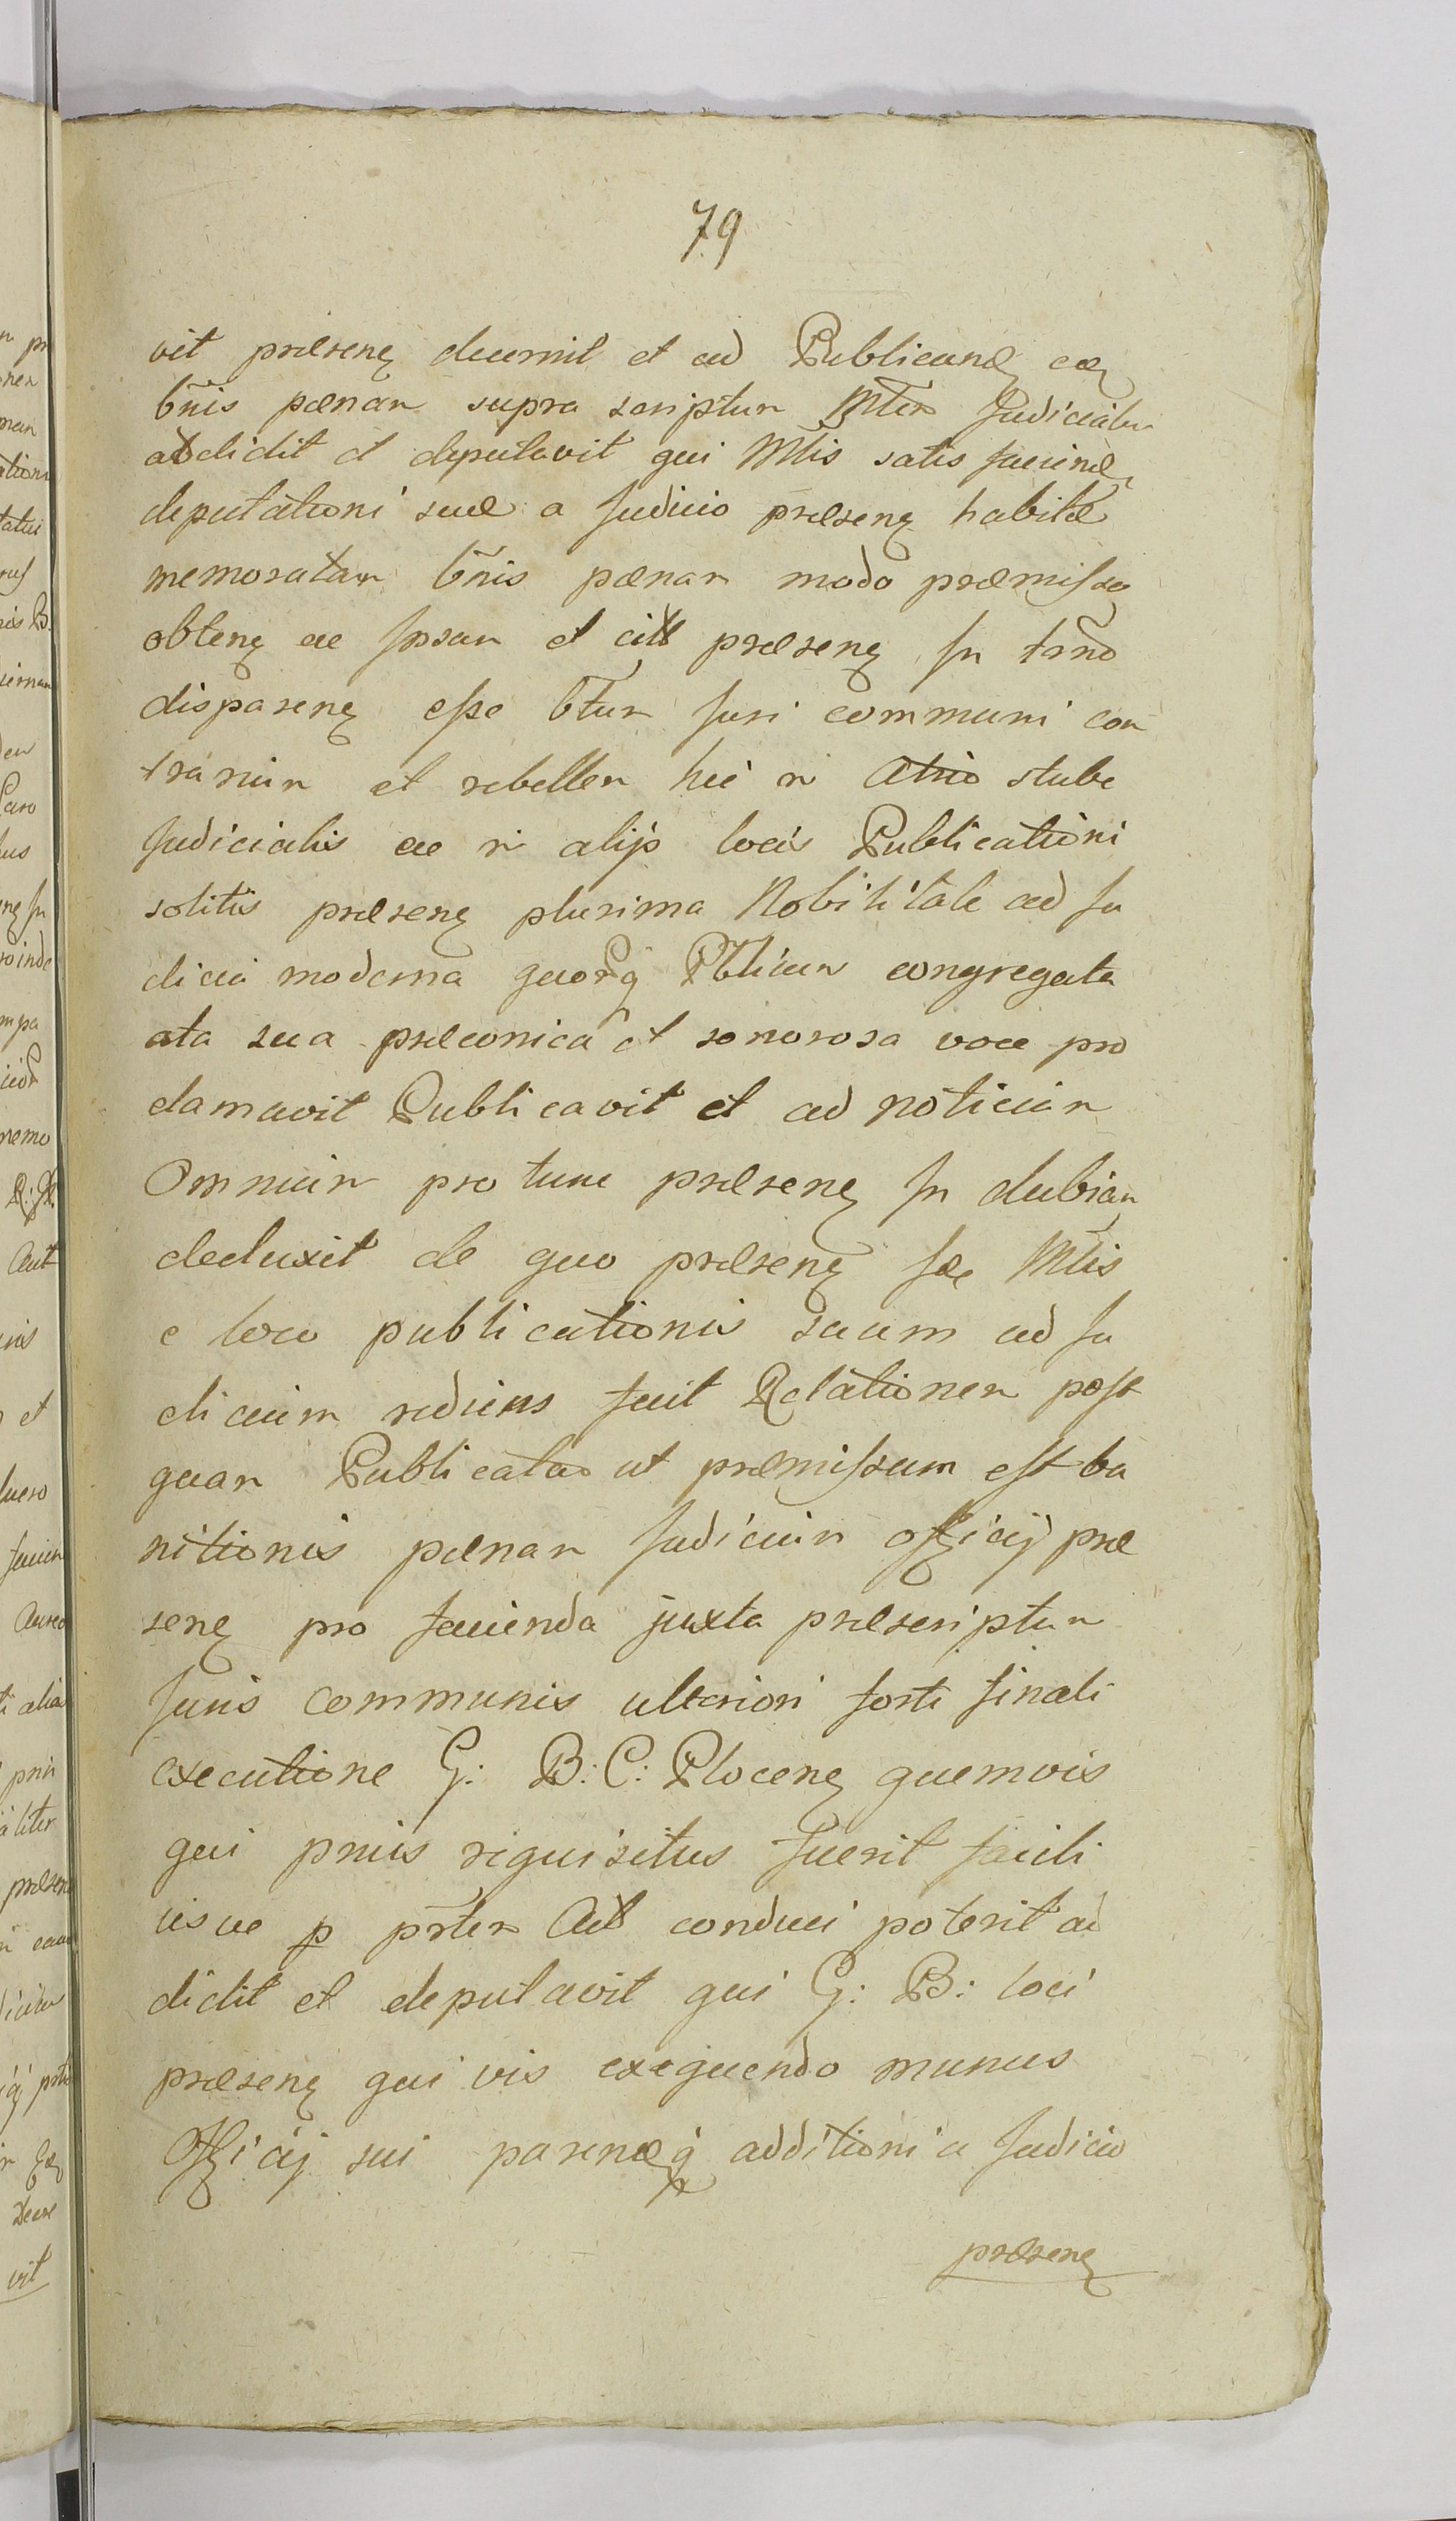 79
vit præsenȩ decernit et ad Publicandȩ eaȩ
bnis pœnam supra scriptum Mtrō Judicialm
addidit et deputavit qui Mtlis satis faciendȩ
deputationi suæ a Judicio præsenȩ habitæ
memoratam bnis pœnam modo præmisso
obtenȩ ac Ipsam et citt præsenȩ In trnō
disparenȩ esse btum Juri communi con
trarium et rebellem hic in Atrio stubæ
Judicialis ac in alijs locis Publicationi
solitis præsenȩ plurima Nobilitate ad Ju
dicia moderna quorȩ Pblicum congregata
ata sua præconica et sonorosa voce pro
clamavit Publicavit et ad noticiam
Omnium pro tunc præsenȩ In dubiam
deduxit de quo præsenȩ Jdȩ Mtlis
e loco publicationis suum ad Ju
dicium rediens fecit Relationem post
quam Publicatao ut præmissum est ba
nitionis pœnam Judicium officij præ
senȩ pro facienda juxta præscriptum
Juris communis ulteriori forti finali
executione G: B: C: Plocenȩ quemvis
qui prius requisitus fuerit facili
usve p prtem Actt conduci poterit ad
didit et deputavit qui G: B: loci
præsenȩ qui vis exequendo munus
Officij sui parendȩ additioni a Judicio
præsenȩ